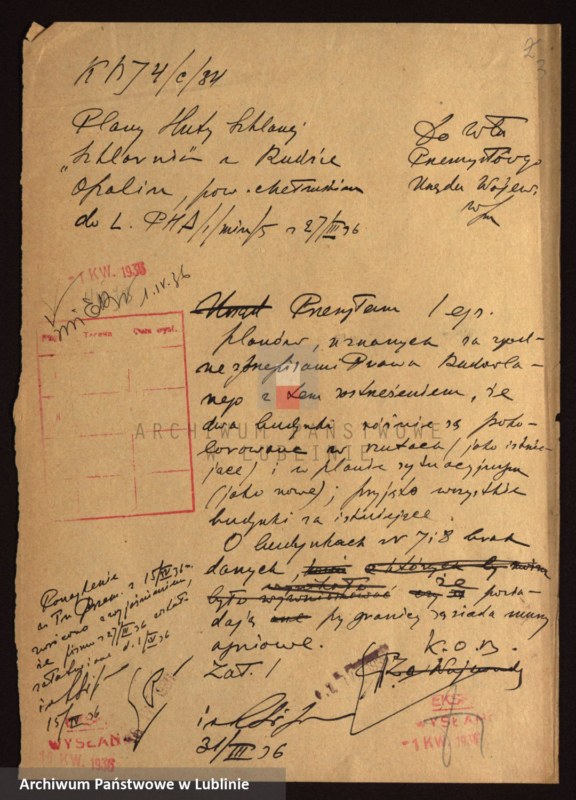 K B J 4/c/34
Plany Huty Szklanej
"Szklarnia" w Rudzie
Opalin, pow. chełmskim
do L. PHA/1/min/5 z 27/III 36
Do Wła
Przemysłowego
Urzędu Wojew.
w/m
-1 KW. 1936
1.IV.36
Urząd Przesyłam 1 egz.
planów, uznanych za zgod-
ne z przepisami Prawa Budowla-
nego z tem zastrzeżeniem, że
dwa budynki różnie są poko-
lorowane w rzutach (jako istnie-
jące) i w planie sytuacyjnym
(jako nowe); przyjęto wszystkie
budynki za istniejące.
O budynkach Nr 7 i 8 brak
danych, że posia-
dają przy granicy sąsiada mury
ogniowe.
Zał. 1
K.O.B.
Za Wojewodę
31/III 36
Ponaglenie
z 15/IV 36
zwrócono z wyjaśnieniem,
że pismo z 27/III 36 zostało
załatwione d. 1/IV 36
15/IV 36
WYSŁANO
EKSP.
WYSŁANO
-1 KW. 1936
ARCHIWUM PAŃSTWOWE
W LUBLINIE
Archiwum Państwowe w Lublinie